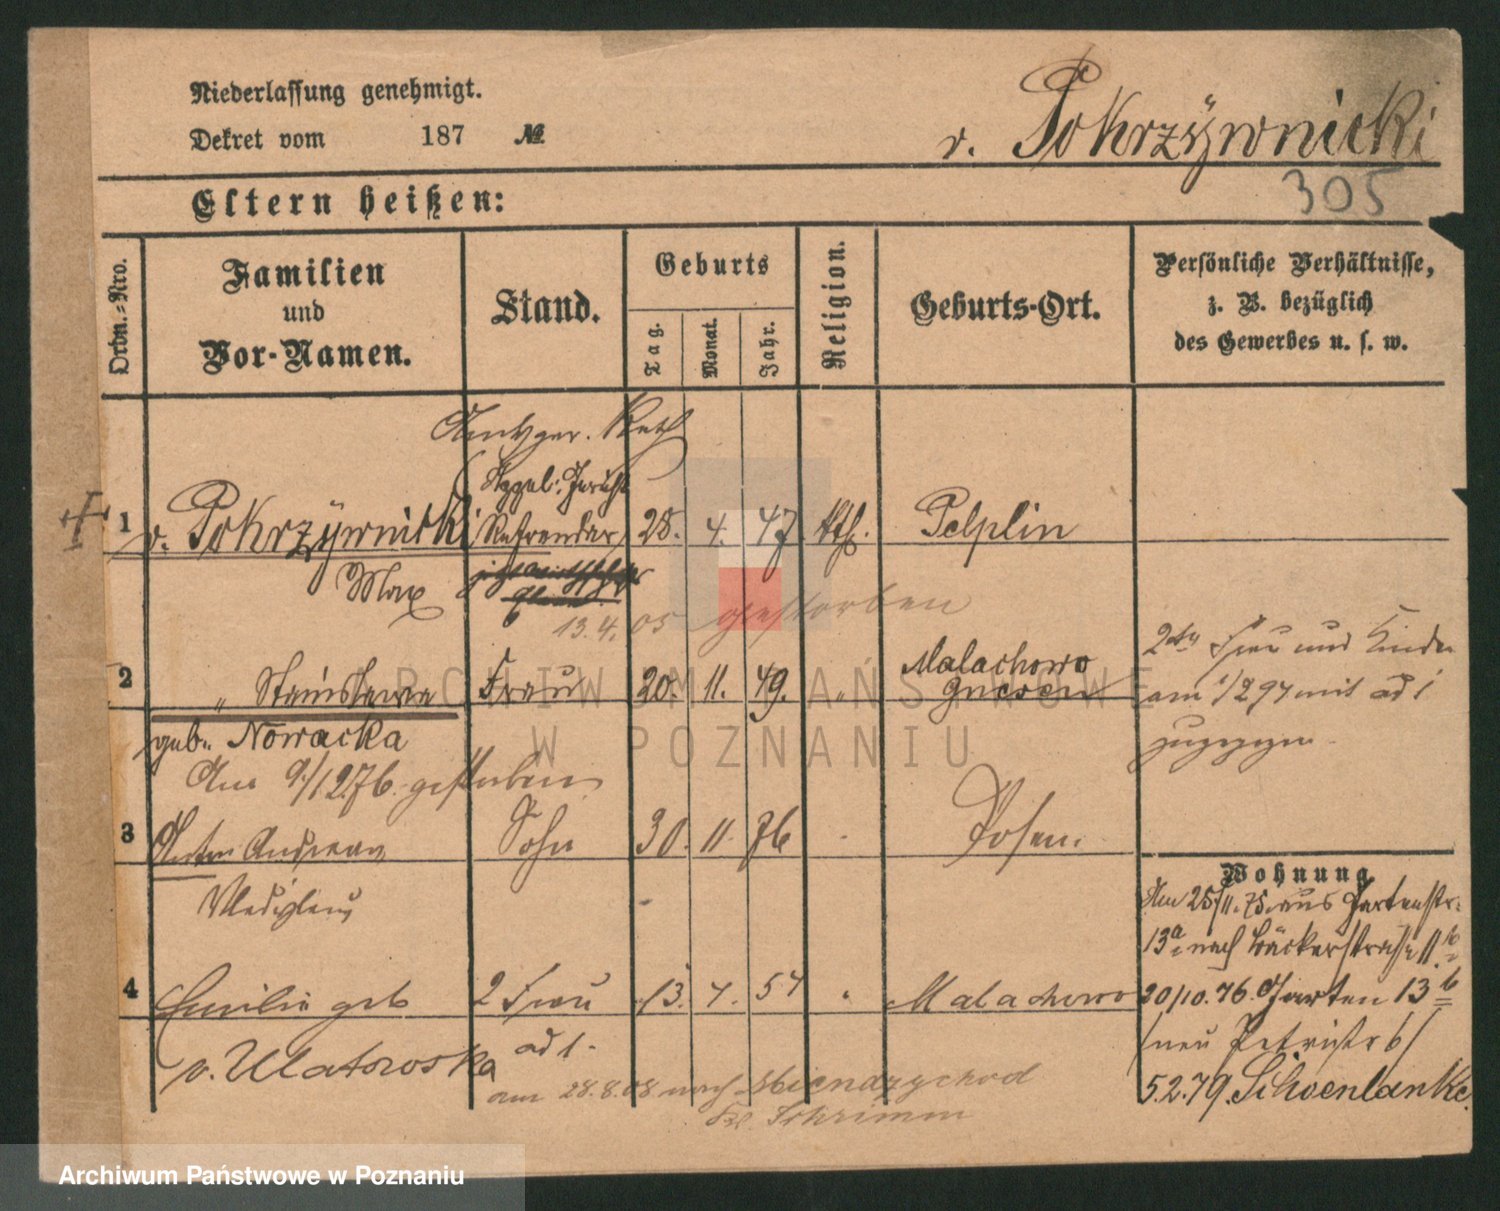 Niederlassung genehmigt.
Dekret vom 187 №
v. Pokrzywnicki
305
Eltern heißen:
Ordn.-Nro.
Familien und Vor-Namen.
Stand.
Geburts
Tag.
Monat.
Jahr.
Religion.
Geburts-Ort.
Persönliche Verhältnisse,
z. B. bezüglich
des Gewerbes u. s. w.
Amtsger. Rath
Appel. Gericht
1 v. Pokrzywnicki Referendar 28. 4. 47 kth. Pelplin
Max
13.4.05 gestorben
2 " Stanislawa Frau 20. 11. 49. " Malachowo
Gnesen
geb. Nowacka
Am 9/12 76. gestorben
2te Frau und Kinder
am 1/2 97 mit ad 1
zugezogen
3 Anton Andreas Sohn 30. 11. 76 Posen.
Wladislaus
Wohnung
Am 25/11. 75. aus Gartenstr.
13a nach Bäckerstraße 11b
4 Emilie geb 2 Frau 13. 7. 57 " Malachowo
20/10. 76. Garten 13b
v. Ulatowska ad 1.
(neu Petristr 6)
am 28.8.08 nach
Schrimm
5.2.79. Schoenlanke
ARCHIWUM PAŃSTWOWE
W POZNANIU
Archiwum Państwowe w Poznaniu